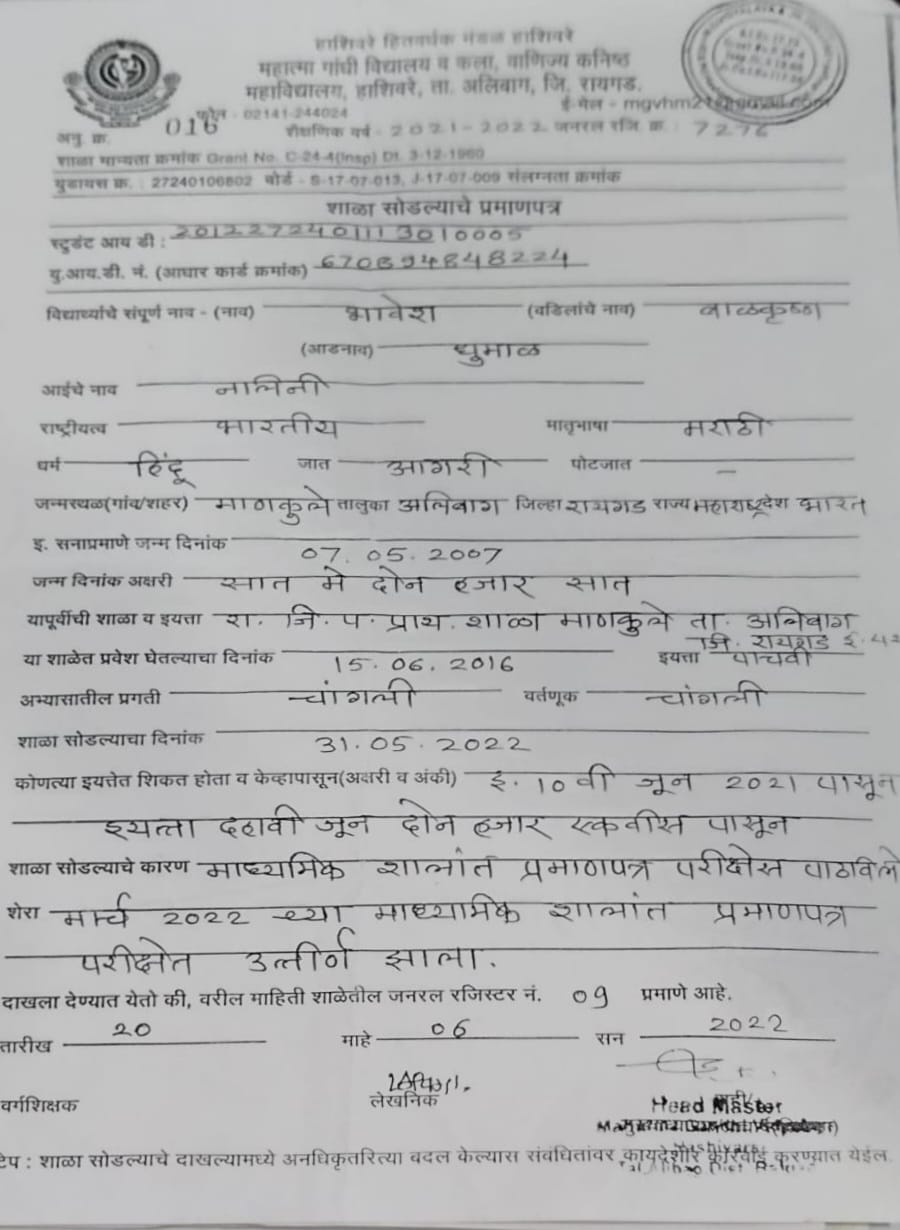 हाशिवरे हितवर्धक मंडळ हाशिवरे
महात्मा गांधी विद्यालय व कला, वाणिज्य कनिष्ठ
महाविद्यालय, हाशिवरे, ता. अलिबाग, जि. रायगड.
फोन - 02141-244024 ई-मेल -
अनु. क्र. 016 शैक्षणिक वर्ष - 2021-2022 जनरल रजि. क्र. : 7276
शाळा मान्यता क्रमांक Grant No. C-24-4(Insp) Dt. 3-12-1960
युडायस क्र. : 27240106802 बोर्ड - S-17-07-013, J-17-07-009 संलग्नता क्रमांक
शाळा सोडल्याचे प्रमाणपत्र
स्टुडंट आय डी : 2012272401113010005
यु.आय.डी. नं. (आधार कार्ड क्रमांक) 670894848224
विद्यार्थ्याचे संपूर्ण नाव - (नाव) भावेश (वडिलांचे नाव) बाळकृष्ण
(आडनाव) धुमाळ
आईचे नाव नालिनी
राष्ट्रीयत्व भारतीय मातृभाषा मराठी
धर्म हिंदू जात आगरी पोटजात -
जन्मस्थळ(गांव/शहर) माणकुले तालुका अलिबाग जिल्हा रायगड राज्य महाराष्ट्र देश भारत
इ. सनाप्रमाणे जन्म दिनांक 07.05.2007
जन्म दिनांक अक्षरी सात मे दोन हजार सात
यापूर्वीची शाळा व इयत्ता रा. जि. प. प्राथ. शाळा माणकुले ता. अलिबाग
जि. रायगड इ. 4थी
या शाळेत प्रवेश घेतल्याचा दिनांक 15.06.2016 इयत्ता पाचवी
अभ्यासातील प्रगती चांगली वर्तणूक चांगली
शाळा सोडल्याचा दिनांक 31.05.2022
कोणत्या इयत्तेत शिकत होता व केव्हापासून(अक्षरी व अंकी) इ. 10 वी जून 2021 पासून
इयत्ता दहावी जून दोन हजार एकवीस पासून
शाळा सोडल्याचे कारण माध्यमिक शालांत प्रमाणपत्र परीक्षेस पाठविले
शेरा मार्च 2022 च्या माध्यमिक शालांत प्रमाणपत्र
परीक्षेत उत्तीर्ण झाला.
दाखला देण्यात येतो की, वरील माहिती शाळेतील जनरल रजिस्टर नं. 09 प्रमाणे आहे.
तारीख 20 माहे 06 सन 2022
वर्गशिक्षक लेखनिक Head Master
टिप : शाळा सोडल्याचे दाखल्यामध्ये अनधिकृतरित्या बदल केल्यास संबंधितांवर कायदेशीर कारवाई करण्यात येईल.